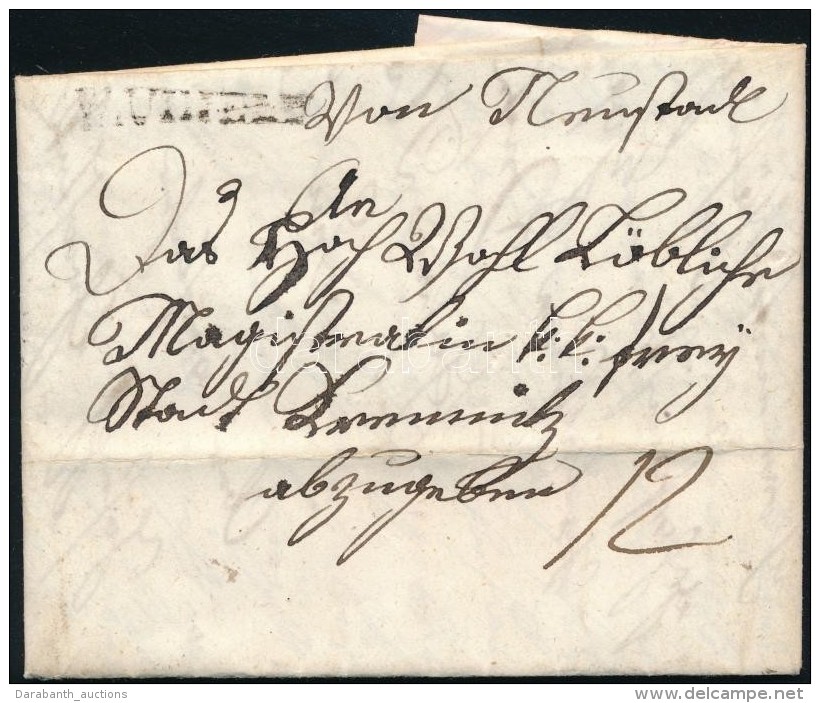 Von Neustadl
de
Das Hoch Wohl Löbliche
Magistrat in k: k: frey
Stadt Kremnitz
abzugeben 12
darabanth
Darabanth_auctions
www.delcampe.net